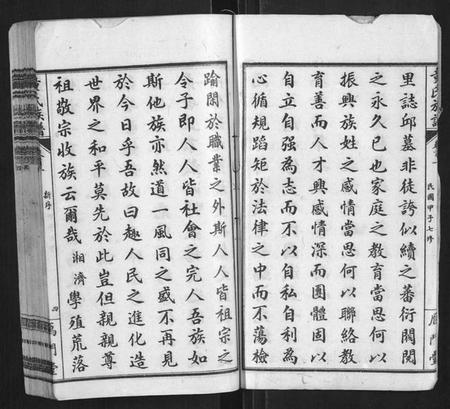 里誌邱墓非徒誇似續之蕃衍閥閱
之永久已也家庭之教育當思何以
振興族姓之感情當思何以聯絡教
育善而人才興感情深而團體固以
自立自強為志而不以自私自利為
心循規蹈矩於法律之中而不蕩檢
踰閑於職業之外斯人人皆祖宗之
令子即人人皆社會之完人吾族如
斯他族亦然道一風同之盛不再見
於今日乎吾故曰趣人民之進化造
世界之和平莫先於此豈但親親尊
祖敬宗收族云爾哉 湘濟學殖荒落
民國甲子七修
新序
四